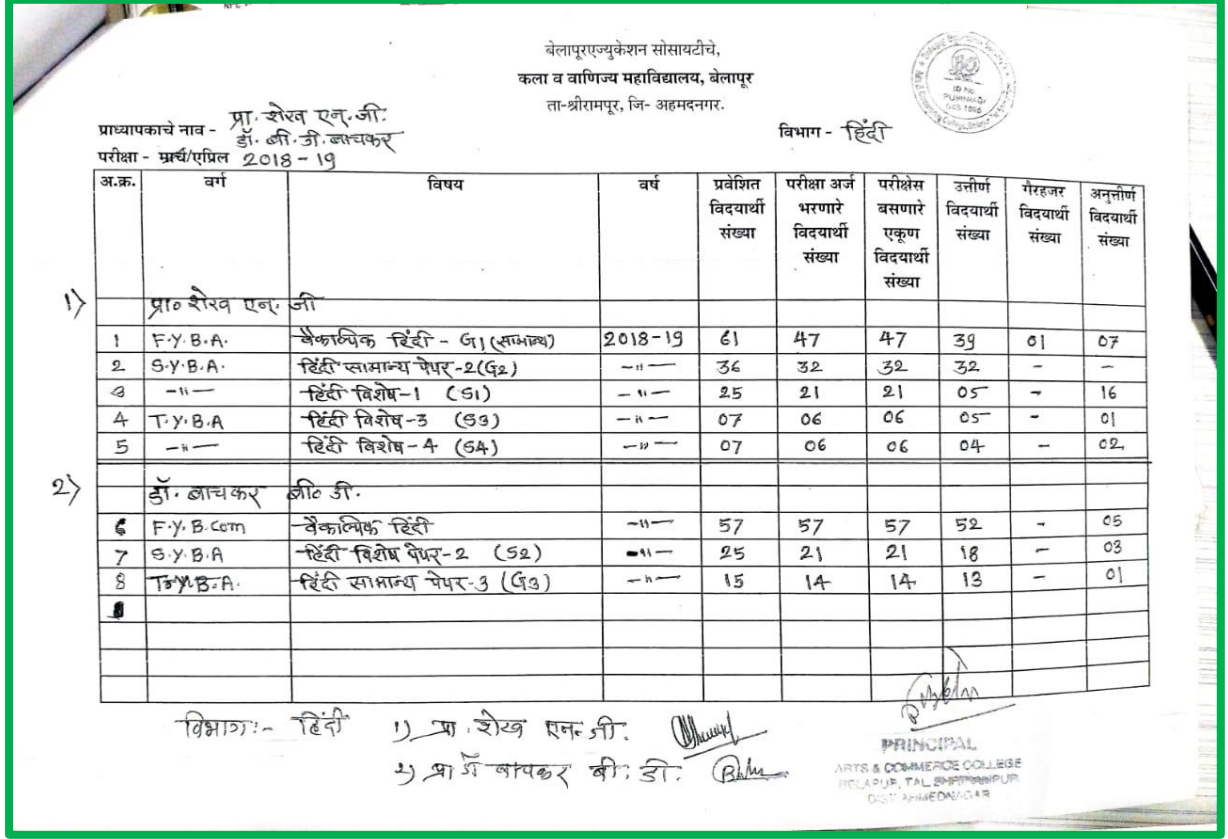 बेलापूरएज्युकेशन सोसायटीचे,
कला व वाणिज्य महाविद्यालय, बेलापूर
ता-श्रीरामपूर, जि- अहमदनगर.
प्राध्यापकाचे नाव - प्रा. शेख एन्. जी. विभाग - हिंदी
डॉ. बी. डी. बाचकर
परीक्षा - मार्च/एप्रिल 2018-19
अ.क्र. वर्ग विषय वर्ष प्रवेशित विदयार्थी संख्या परीक्षा अर्ज भरणारे विदयार्थी संख्या परीक्षेस बसणारे एकूण विदयार्थी संख्या उत्तीर्ण विदयार्थी संख्या गैरहजर विदयार्थी संख्या अनुत्तीर्ण विदयार्थी संख्या
1) प्रा० शेख एन्. जी
1 F.Y.B.A. वैकल्पिक हिंदी - G1 (सामान्य) 2018-19 61 47 47 39 01 07
2 S.Y.B.A. हिंदी सामान्य पेपर-2 (G2) -"- 36 32 32 32 - -
3 -"- हिंदी विशेष-1 (S1) -"- 25 21 21 05 - 16
4 T.Y.B.A हिंदी विशेष-3 (S3) -"- 07 06 06 05 - 01
5 -"- हिंदी विशेष-4 (S4) -"- 07 06 06 04 - 02
2) डॉ. बाचकर बी० डी.
6 F.Y.B.Com वैकल्पिक हिंदी -"- 57 57 57 52 - 05
7 S.Y.B.A हिंदी विशेष पेपर-2 (S2) -"- 25 21 21 18 - 03
8 T.Y.B.A. हिंदी सामान्य पेपर-3 (G3) -"- 15 14 14 13 - 01
विभाग:- हिंदी 1) प्रा. शेख एन. जी.
2) प्रा डॉ बाचकर बी. डी.
PRINCIPAL
ARTS & COMMERCE COLLEGE
BELAPUR, TAL. SHRIRAMPUR
DIST. AHMEDNAGAR